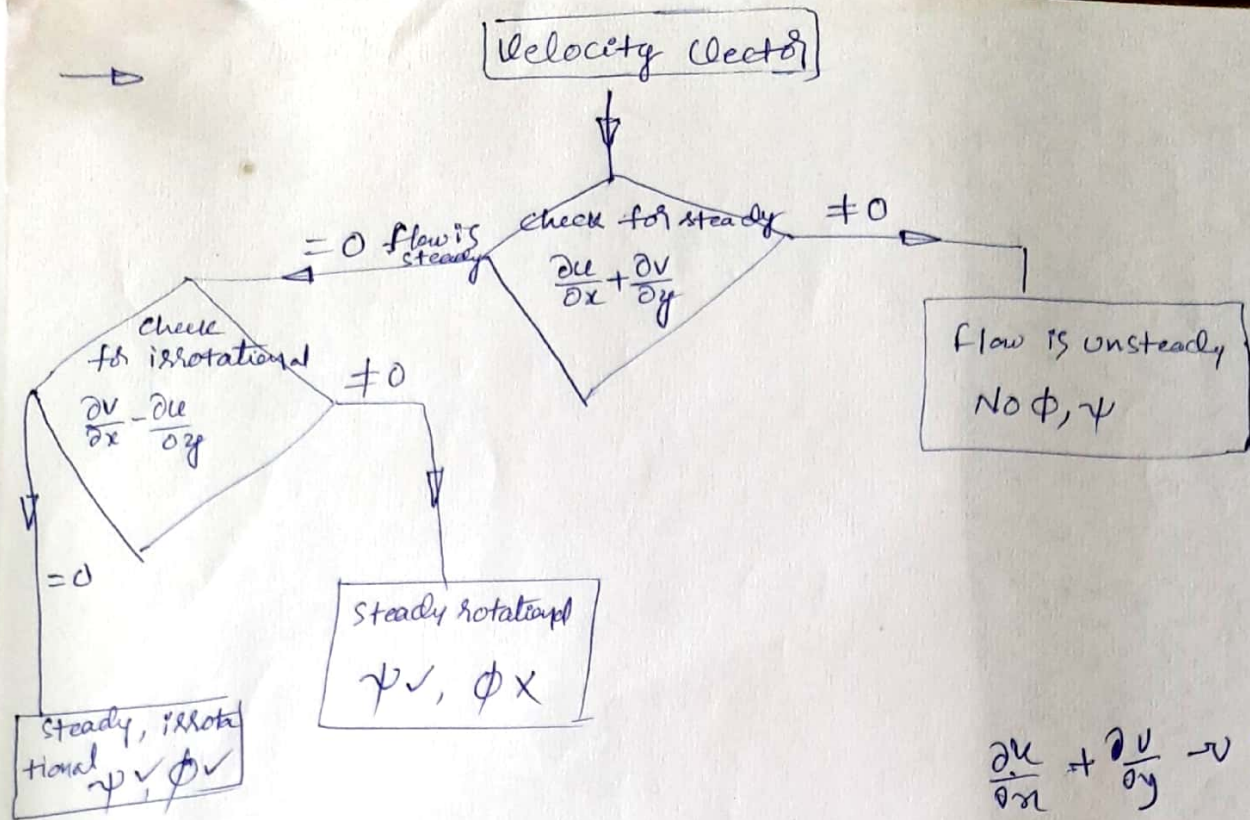 Velocity Vector
check for steady
≠0
=0 flow is
steady
∂u/∂x + ∂v/∂y
flow is unsteady
No ϕ, ψ
check
for irrotational
≠0
∂v/∂x - ∂u/∂y
=0
steady rotational
ψ✓, ϕ x
steady, irrota
tional
ψ✓, ϕ✓
∂u/∂x + ∂v/∂y